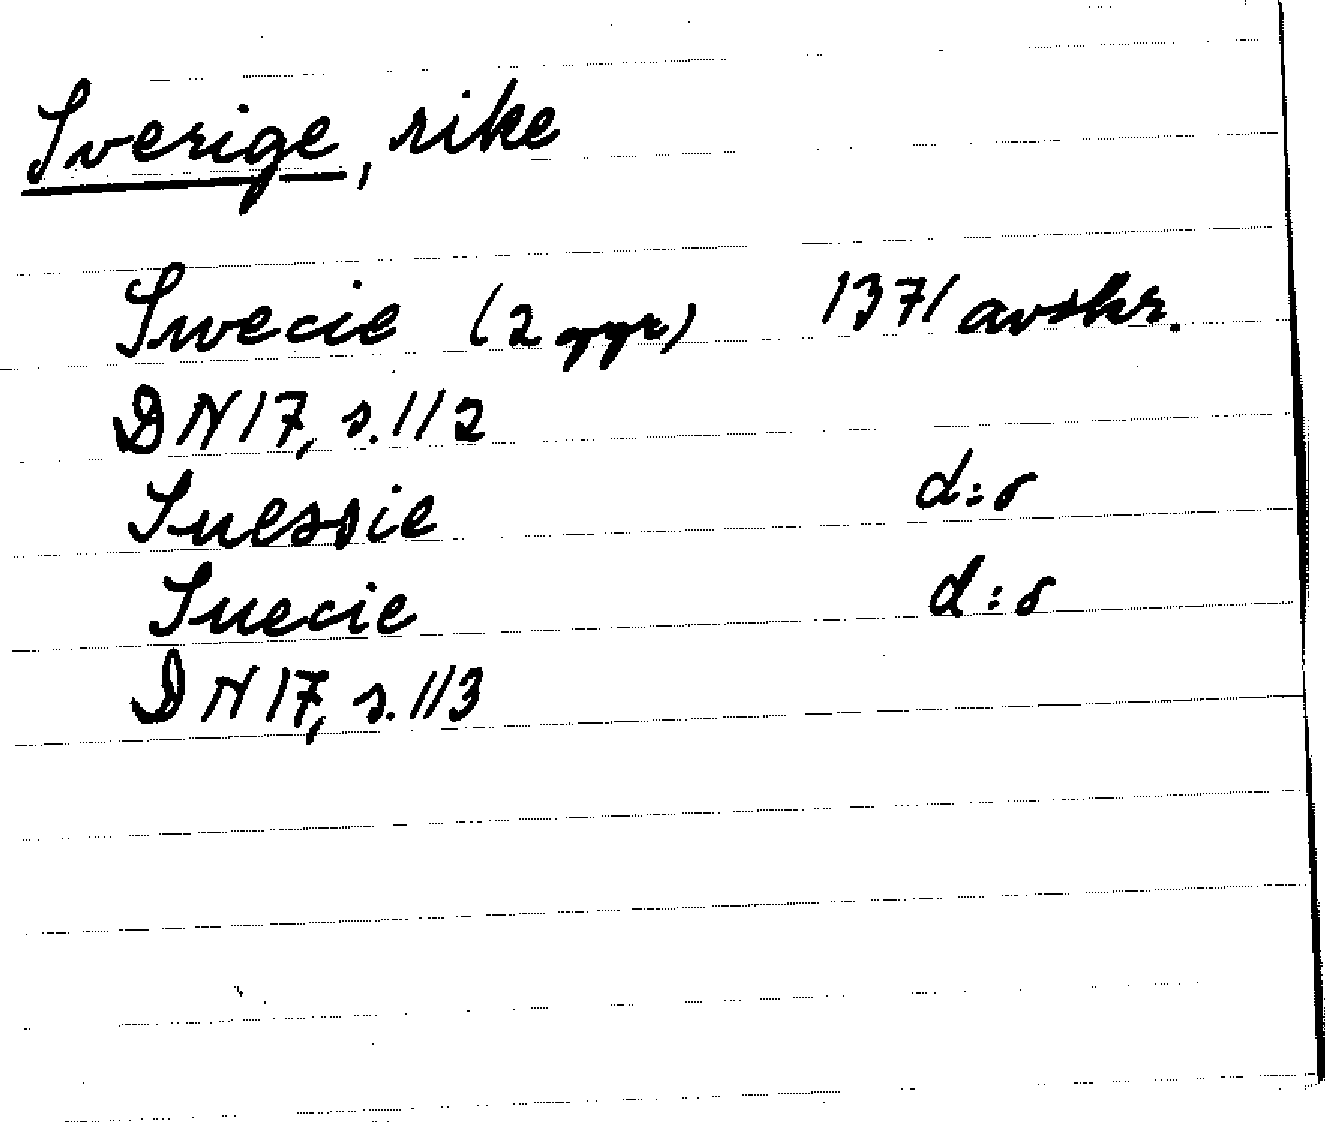 Sverige, rike
Swecie (2 ggr) 1371 avskr.
DN 17, s. 112
Suessie d:o
Suecie d:o
DN 17, s. 113